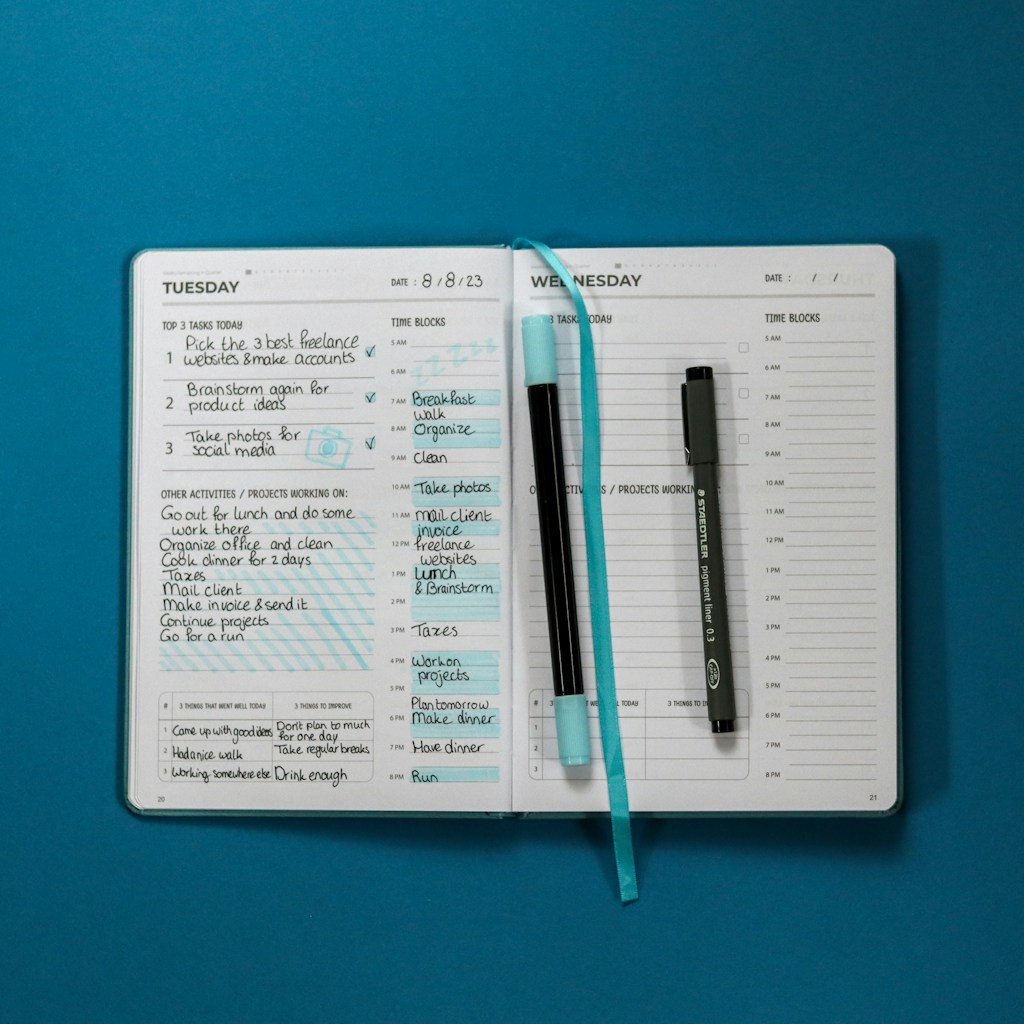 TUESDAY
DATE : 8 / 8 / 23
TOP 3 TASKS TODAY
1 Pick the 3 best freelance
websites & make accounts
2 Brainstorm again for
product ideas
3 Take photos for
social media
OTHER ACTIVITIES / PROJECTS WORKING ON:
Go out for lunch and do some
work there
Organize office and clean
Cook dinner for 2 days
Taxes
Mail client
Make invoice & send it
Continue projects
Go for a run
# 3 THINGS THAT WENT WELL TODAY 3 THINGS TO IMPROVE
1 Came up with good ideas Don't plan to much
for one day
2 Had a nice walk Take regular breaks
3 Working somewhere else Drink enough
20
TIME BLOCKS
5 AM ZZZzz
6 AM
7 AM Breakfast
walk
8 AM Organize
9 AM Clean
10 AM Take photos
11 AM Mail client
invoice
12 PM freelance
websites
1 PM Lunch
& Brainstorm
2 PM
3 PM Taxes
4 PM Work on
projects
5 PM
Plan tomorrow
6 PM Make dinner
7 PM Have dinner
8 PM Run
WEDNESDAY
DATE : / /
3 TASKS TODAY
/ PROJECTS WORKING
# 3 THINGS TODAY 3 THINGS TO
1
2
3
TIME BLOCKS
5 AM
6 AM
7 AM
8 AM
9 AM
10 AM
11 AM
12 PM
1 PM
2 PM
3 PM
4 PM
5 PM
6 PM
7 PM
8 PM
21
STAEDTLER pigment liner 0.3